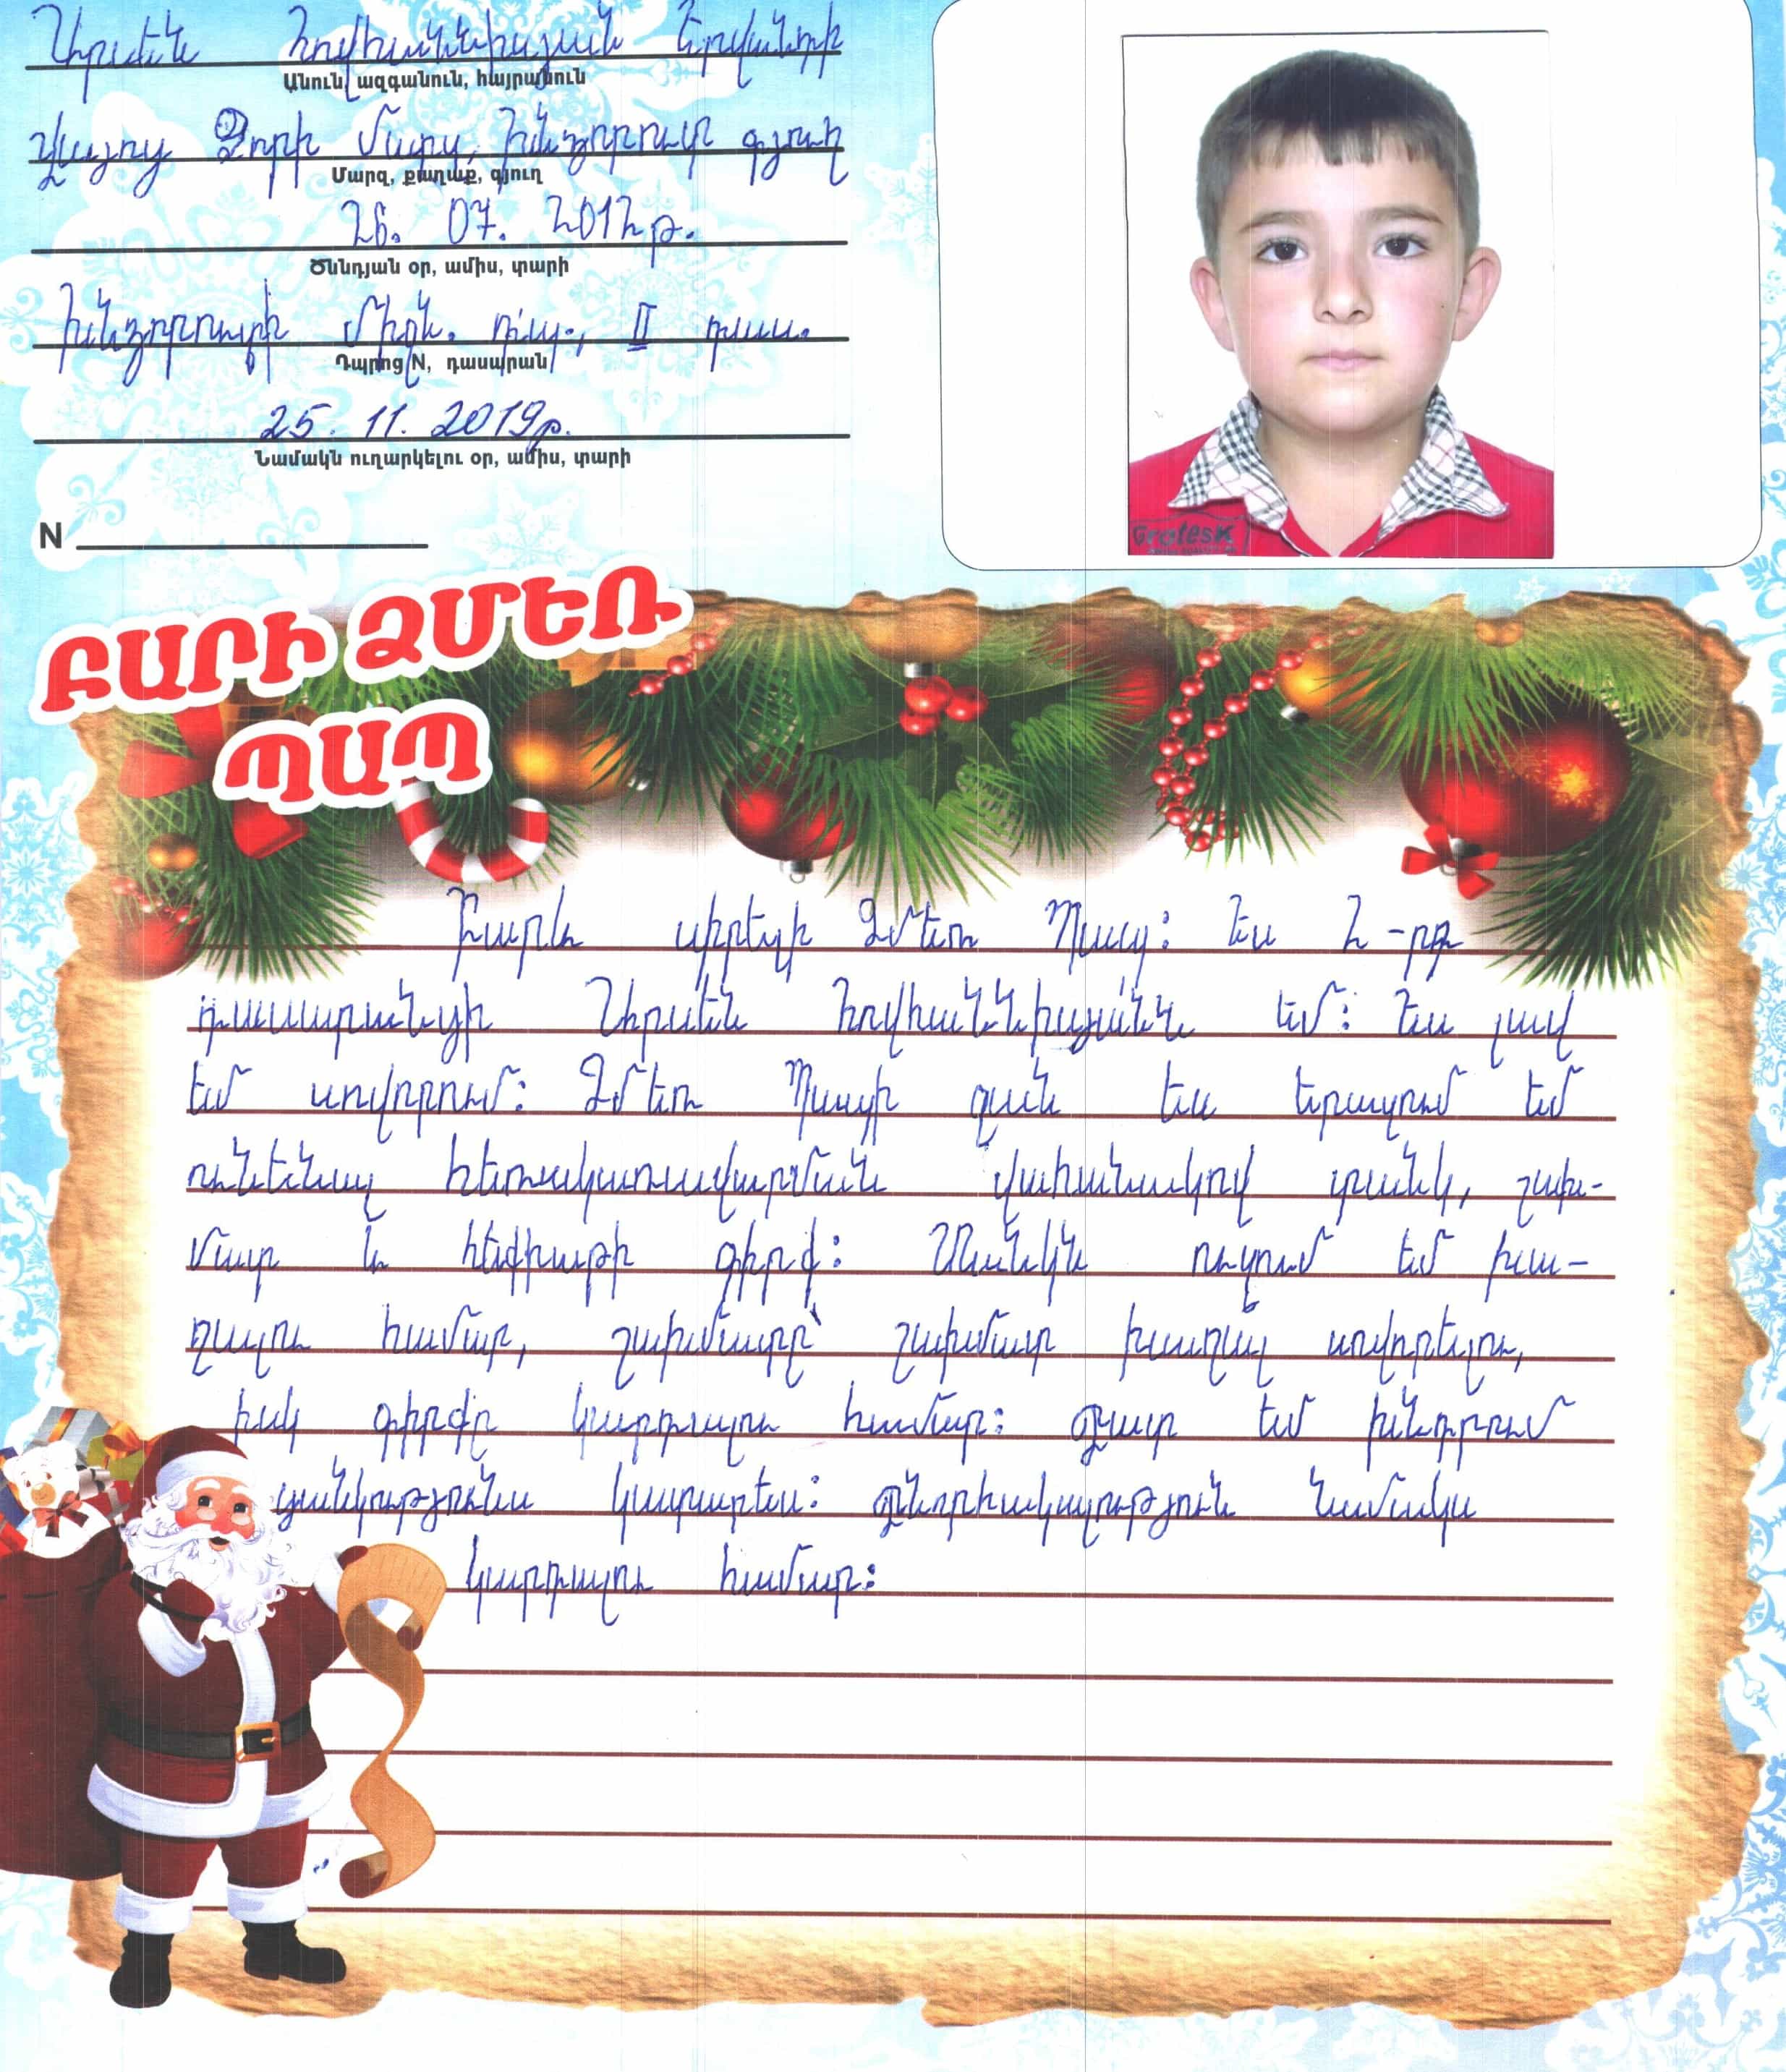 Արսեն Հովհաննիսյան Երվանդի
Անուն, ազգանուն, հայրանուն
Վայոց Ձորի մարզ, Խնձորուտ գյուղ
Մարզ, քաղաք, գյուղ
26. 07. 2012թ.
Ծննդյան օր, ամիս, տարի
Խնձորուտի միջն. դպ., II դաս.
Դպրոց N, դասարան
25. 11. 2019թ.
Նամակն ուղարկելու օր, ամիս, տարի
N
ԲԱՐԻ ՁՄԵՌ
ՊԱՊ
Grotesk
Բարև սիրելի Ձմեռ Պապ: Ես 2-րդ
դասարանցի Արսեն Հովհաննիսյանն եմ: Ես լավ
եմ սովորում: Ձմեռ Պապի ջան ես երազում եմ
ունենալ հեռակառավարման վահանակով տանկ, շախ-
մատ և հեքիաթի գիրք: Տանկն ուզում եմ խա-
ղալու համար, շախմատը՝ շախմատ խաղալ սովորելու,
իսկ գիրքը կարդալու համար: Շատ եմ խնդրում
ցանկությունս կատարես: Շնորհակալություն նամակս
կարդալու համար: